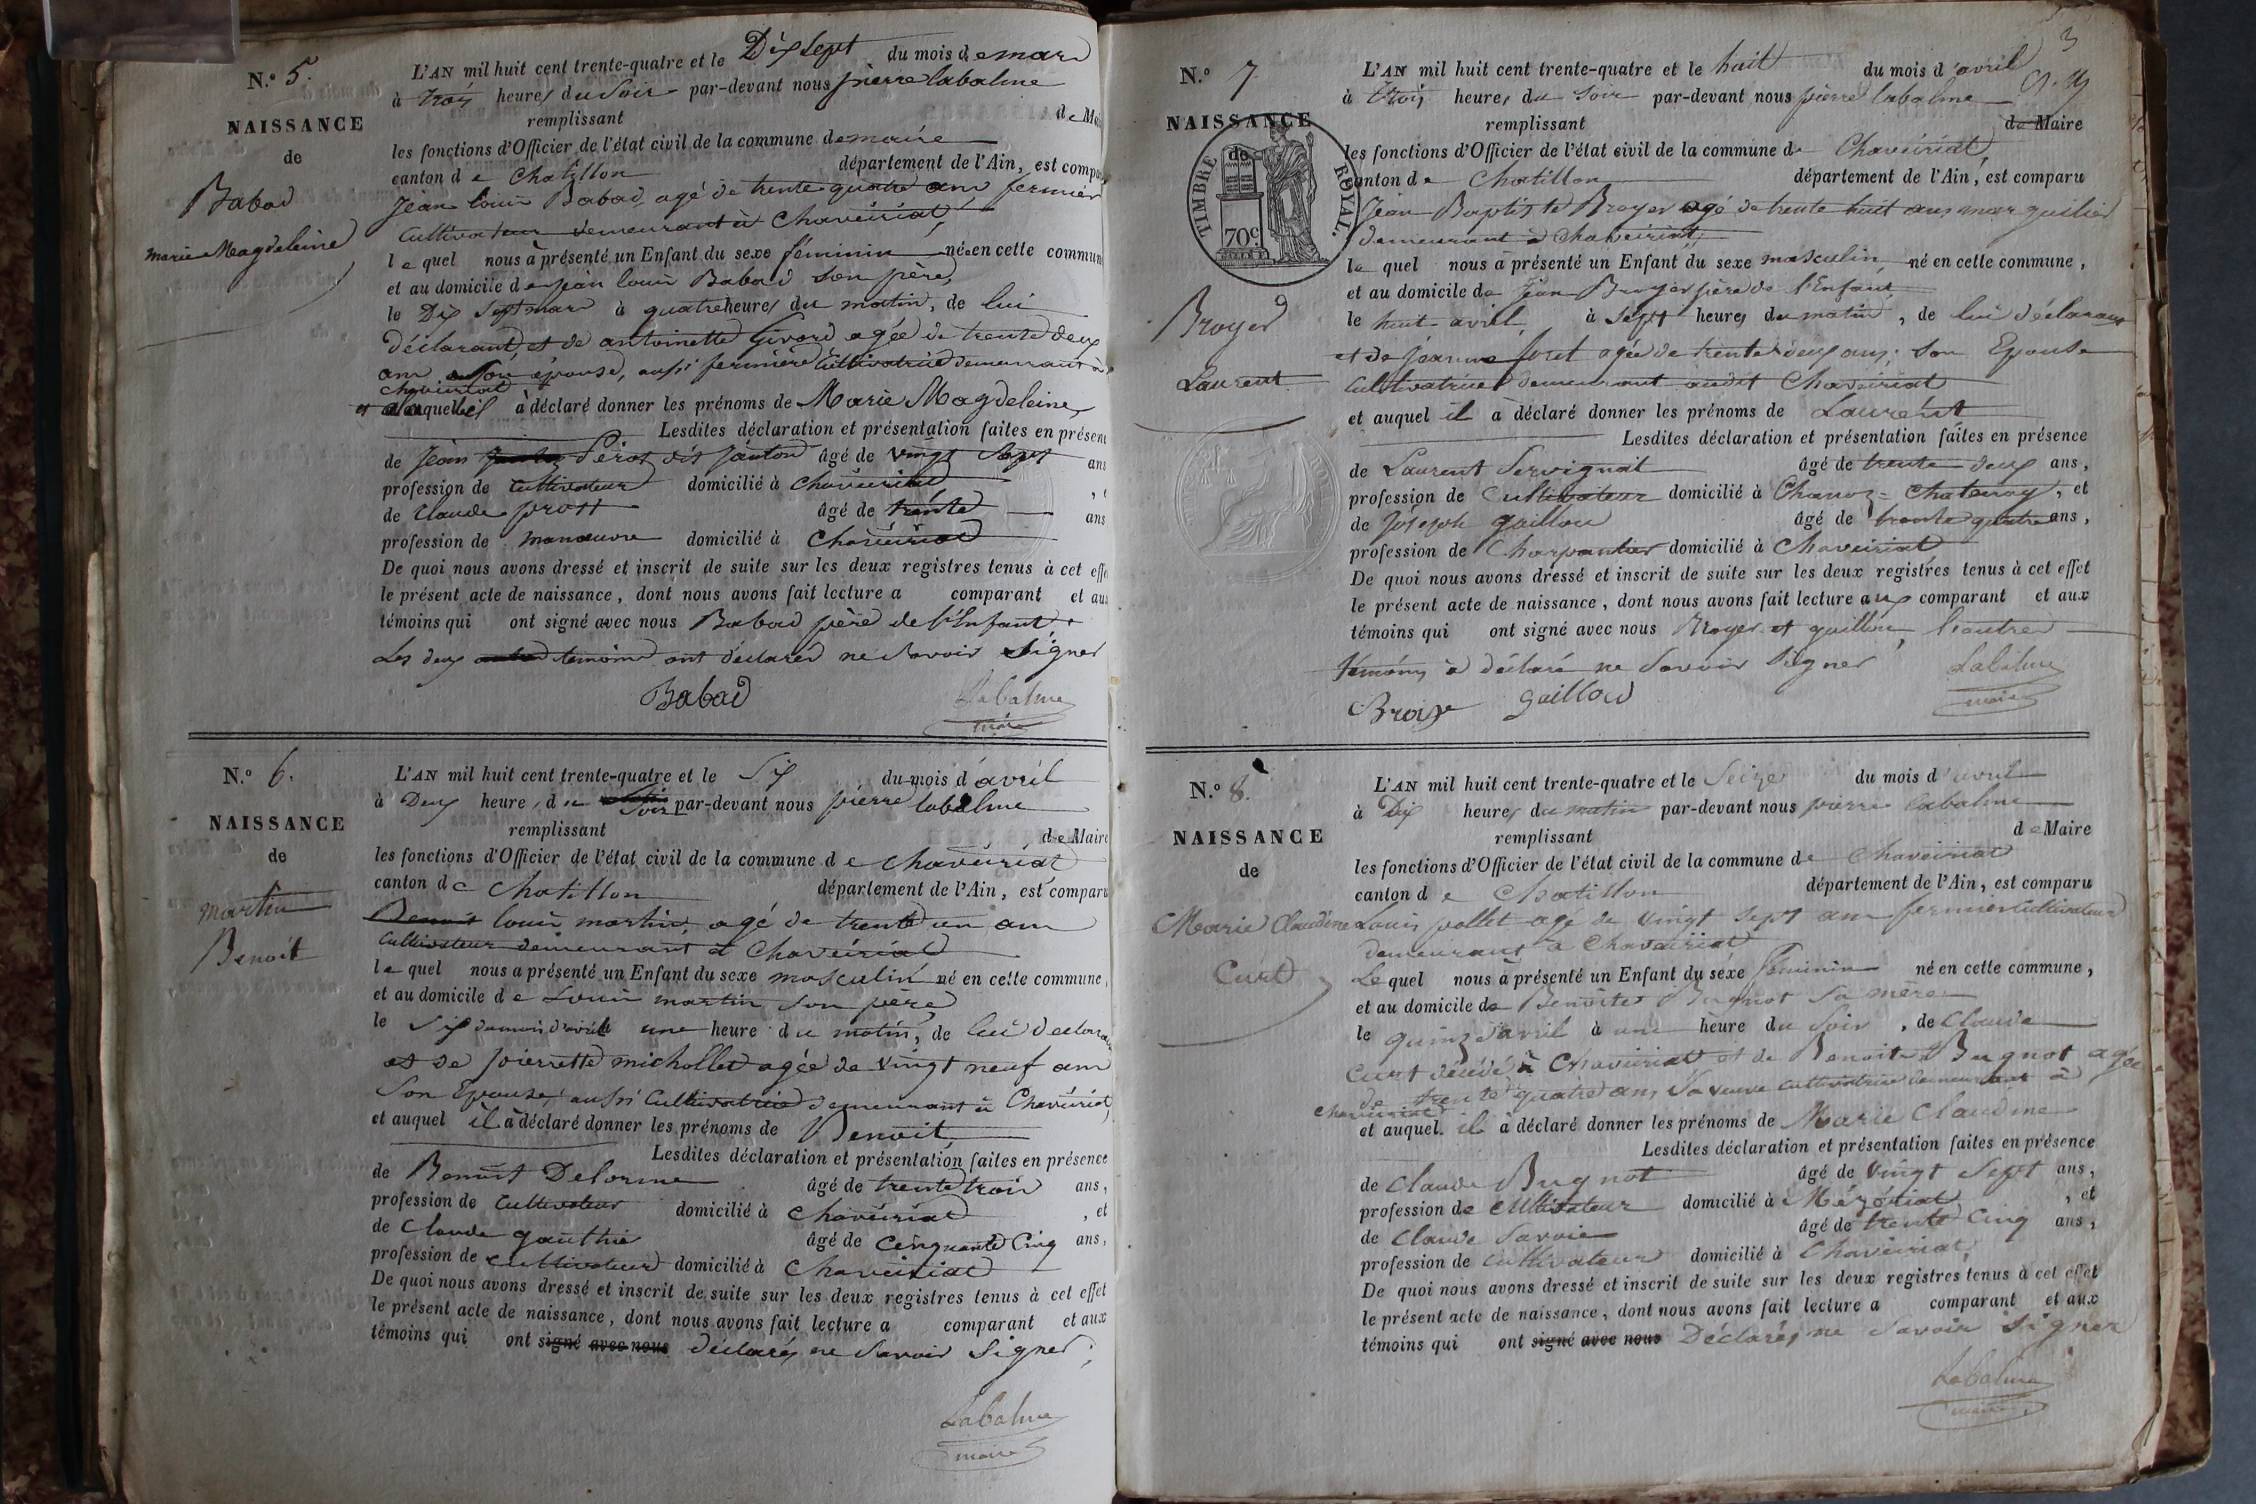 N.° 5.
NAISSANCE
de
Babad
marie Magdeleine
L'AN mil huit cent trente-quatre et le Dix sept du mois de mars
à trois heures du Soir par-devant nous pierre labalme
remplissant de Mai
les fonctions d'Officier de l'état civil de la commune de mairie
canton de Chatillon département de l'Ain, est compa
jean louis Babad, agé de trente quatre ans fermier
Cultivateur demeurant à Chaveiriat,
lequel nous à présenté un Enfant du sexe féminin née en cette commun
et au domicile de jean louis Babad son père,
le Dix Sept mars à quatre heures du matin, de lui
déclarant, et de antoinette Girard agée de trente deux
ans son épouse, aussi fermière Cultivatrice demeurant à
Chaveiriat
et à laquelle il à déclaré donner les prénoms de Marie Magdeleine,
Lesdites déclaration et présentation faites en présen
de jean Pérot dit janton âgé de vingt Sept ans
profession de Cultivateur domicilié à Chaveiriat
de Claude prost âgé de trente ans
profession de manœuvre domicilié à Chaveiriat
De quoi nous avons dressé et inscrit de suite sur les deux registres tenus à cet effe
le présent acte de naissance, dont nous avons fait lecture a comparant et aux
témoins qui ont signé avec nous Babad père de l'Enfant.
Les deux témoins ont déclarés ne Savoir Signer
Babad Labalme
maire
N.° 6.
NAISSANCE
de
martin
Benoit
L'AN mil huit cent trente-quatre et le Six du mois d'avril
à Deux heures du Soir par-devant nous pierre labalme
remplissant de Maire
les fonctions d'Officier de l'état civil de la commune de Chaveiriat
canton de Chatillon département de l'Ain, est comparu
Benoit louis martin, agé de trente un ans
Cultivateur demeurant à Chaveiriat
lequel nous a présenté un Enfant du sexe masculin né en cette commune,
et au domicile de Louis martin son père
le Six du mois d'avril à une heure du matin, de lui déclarant
et de pierrette michollet agée de vingt neuf ans
Son Epouse, aussi Cultivatrice demeurant à Chaveiriat,
et auquel il à déclaré donner les prénoms de Benoit,
Lesdites déclaration et présentation faites en présence
de Benoit Delorme âgé de trente trois ans,
profession de Cultivateur domicilié à Chaveiriat, et
de Claude gauthier âgé de Cinquante Cinq ans,
profession de Cultivateur domicilié à Chaveiriat
De quoi nous avons dressé et inscrit de suite sur les deux registres tenus à cet effet
le présent acte de naissance, dont nous avons fait lecture a comparant et aux
témoins qui ont signé avec nous déclarés ne Savoir Signer;
Labalme
maire
3
N.° 7
NAISSANCE
de
TIMBRE ROYAL.
70c.
Broyer
Laurent
L'AN mil huit cent trente-quatre et le huit du mois d'avril
à trois heures du Soir par-devant nous pierre labalme
remplissant de Maire
les fonctions d'Officier de l'état civil de la commune de Chaveiriat
canton de Chatillon département de l'Ain, est comparu
Jean Baptiste Broyer agé de trente huit ans marguilier
demeurant à Chaveiriat,
lequel nous à présenté un Enfant du sexe masculin né en cette commune,
et au domicile de Jean Broyer père de l'Enfant
le huit avril à Sept heures du matin, de lui déclarant
et de Jeanne foret agée de trente deux ans, Son Epouse
Cultivatrice demeurant audit Chaveiriat
et auquel il à déclaré donner les prénoms de Laurent
Lesdites déclaration et présentation faites en présence
de Laurent Servignat âgé de trente deux ans,
profession de Cultivateur domicilié à Chanoz=Chatenay, et
de Joseph gaillou âgé de trente quatre ans,
profession de Charpentier domicilié à Chaveiriat
De quoi nous avons dressé et inscrit de suite sur les deux registres tenus à cet effet
le présent acte de naissance, dont nous avons fait lecture aux comparant et aux
témoins qui ont signé avec nous Broyer et gaillou, l'autre
témoins à déclaré ne Savoir Signer
Labalme
maire
Broyer gaillou
N.° 8.
NAISSANCE
de
Marie Claudine
Curt
L'AN mil huit cent trente-quatre et le Seize du mois d'avril
à Dix heures du matin par-devant nous pierre labalme
remplissant de Maire
les fonctions d'Officier de l'état civil de la commune de Chaveiriat
canton de Chatillon département de l'Ain, est comparu
Louis pollet agé de vingt Sept ans fermier Cultivateur
demeurant à Chaveiriat
Lequel nous à présenté un Enfant du sexe féminin né en cette commune,
et au domicile de Benoite Bugnot Sa mère
le quinze avril à une heure du Soir, de Claude
Curt décédé à Chaveiriat et de Benoite Bugnot agée
de trente quatre ans, Sa veuve Cultivatrice demeurant à
Chaveiriat
et auquel il à déclaré donner les prénoms de Marie Claudine
Lesdites déclaration et présentation faites en présence
de Claude Bugnot âgé de vingt Sept ans,
profession de Cultivateur domicilié à Mézériat, et
de Claude Savoie âgé de trente Cinq ans,
profession de Cultivateur domicilié à Chaveiriat,
De quoi nous avons dressé et inscrit de suite sur les deux registres tenus à cet effet
le présent acte de naissance, dont nous avons fait lecture a comparant et aux
témoins qui ont signé avec nous Déclarés ne Savoir Signer
Labalme
maire